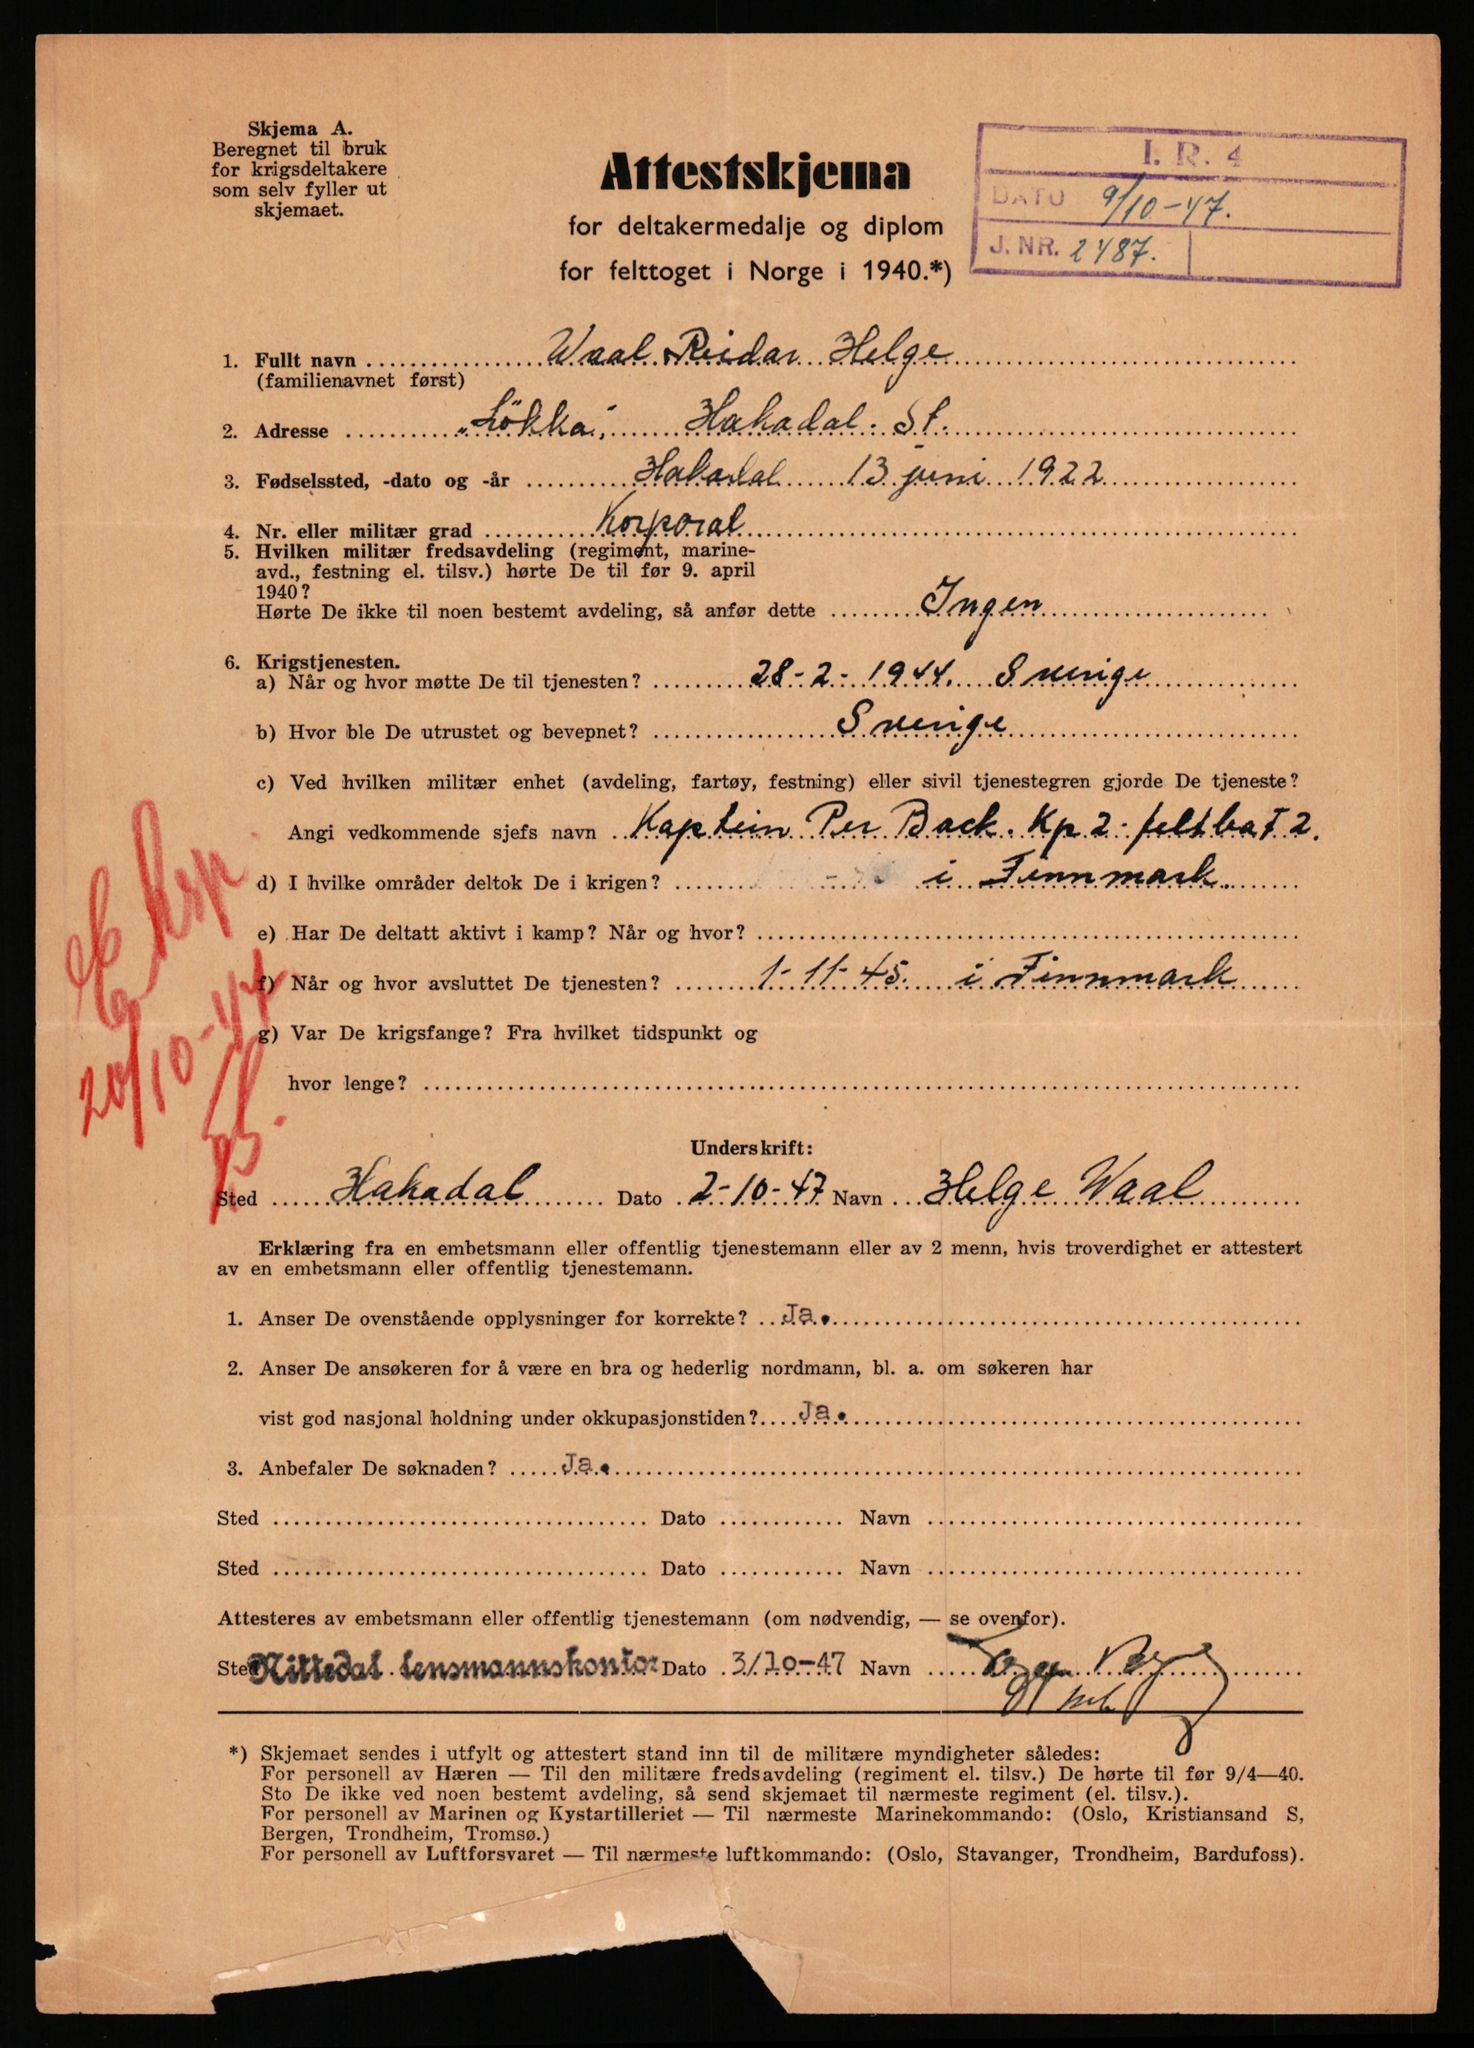 Skjema A.
Beregnet til bruk
for krigsdeltakere
som selv fyller ut
skjemaet.
Attestskjema
for deltakermedalje og diplom
for felttoget i Norge i 1940.*)
I. R. 4
DATO 9/10-47.
J. NR. 2487.
1. Fullt navn Waal Reidar Helge
(familienavnet først)
2. Adresse "Lökka", Hakadal. St.
3. Fødselssted, -dato og -år Hakadal 13 juni 1922
4. Nr. eller militær grad Korporal
5. Hvilken militær fredsavdeling (regiment, marine-
avd., festning el. tilsv.) hørte De til før 9. april
1940?
Hørte De ikke til noen bestemt avdeling, så anfør dette Ingen
6. Krigstjenesten.
a) Når og hvor møtte De til tjenesten? 28-2-1944. Sverige
b) Hvor ble De utrustet og bevepnet? Sverige
c) Ved hvilken militær enhet (avdeling, fartøy, festning) eller sivil tjenestegren gjorde De tjeneste?
Angi vedkommende sjefs navn Kaptein Per Back. Kp 2-feltbat 2.
d) I hvilke områder deltok De i krigen? i Finnmark.
e) Har De deltatt aktivt i kamp? Når og hvor?
f) Når og hvor avsluttet De tjenesten? 1-11-45. i Finnmark
g) Var De krigsfange? Fra hvilket tidspunkt og
hvor lenge?
Eksp
20/10-47
Underskrift:
Sted Hakadal Dato 2-10-47 Navn Helge Waal
Erklæring fra en embetsmann eller offentlig tjenestemann eller av 2 menn, hvis troverdighet er attestert
av en embetsmann eller offentlig tjenestemann.
1. Anser De ovenstående opplysninger for korrekte? Ja.
2. Anser De ansøkeren for å være en bra og hederlig nordmann, bl. a. om søkeren har
vist god nasjonal holdning under okkupasjonstiden? Ja.
3. Anbefaler De søknaden? Ja.
Sted Dato Navn
Sted Dato Navn
Attesteres av embetsmann eller offentlig tjenestemann (om nødvendig, — se ovenfor).
Sted Nittedal lensmannskontor Dato 3/10-47 Navn
*) Skjemaet sendes i utfylt og attestert stand inn til de militære myndigheter således:
For personell av Hæren — Til den militære fredsavdeling (regiment el. tilsv.) De hørte til før 9/4—40.
Sto De ikke ved noen bestemt avdeling, så send skjemaet til nærmeste regiment (el. tilsv.).
For personell av Marinen og Kystartilleriet — Til nærmeste Marinekommando: (Oslo, Kristiansand S,
Bergen, Trondheim, Tromsø.)
For personell av Luftforsvaret — Til nærmeste luftkommando: (Oslo, Stavanger, Trondheim, Bardufoss).